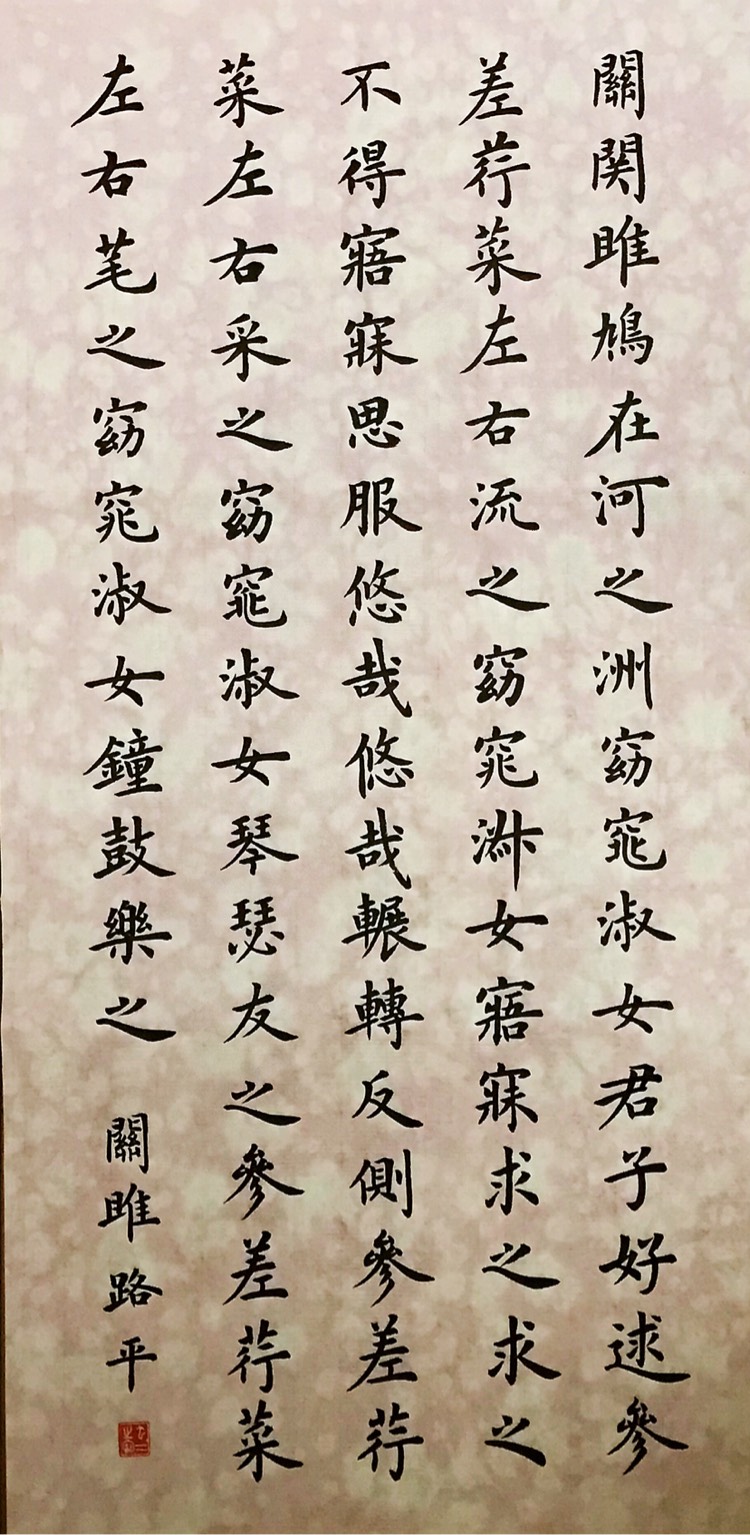 關関雎鳩在河之洲窈窕淑女君子好逑參
差荇菜左右流之窈窕淑女寤寐求之求之
不得寤寐思服悠哉悠哉輾轉反側參差荇
菜左右采之窈窕淑女琴瑟友之參差荇菜
左右芼之窈窕淑女鐘鼓樂之
關雎路平